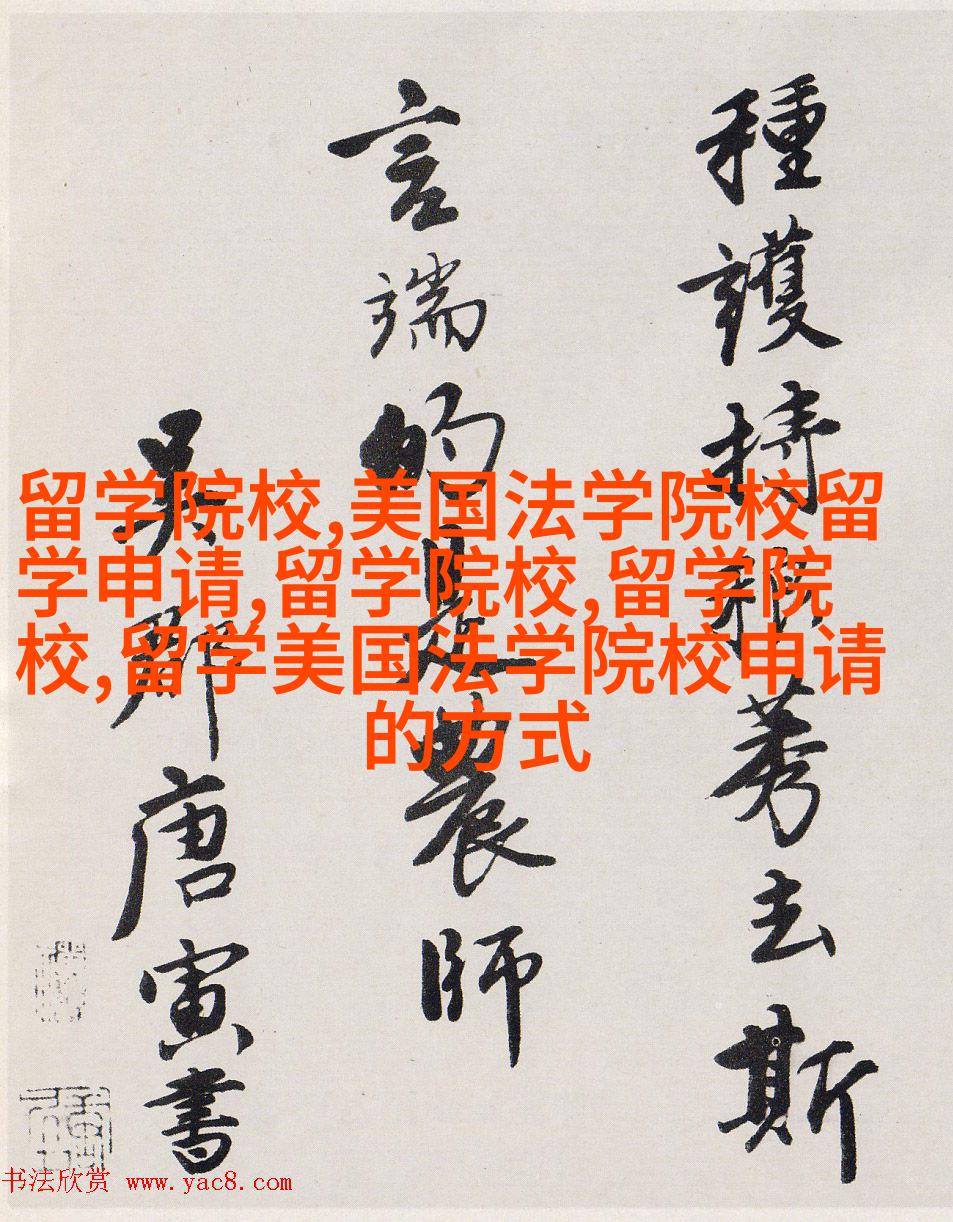 種護持稂莠去斯
言端的是農師
吳郡唐寅書
留学院校,美国法学院校留
学申请,留学院校,留学院
校,留学美国法学院校申请
的方式
书法欣赏 www.yac8.com